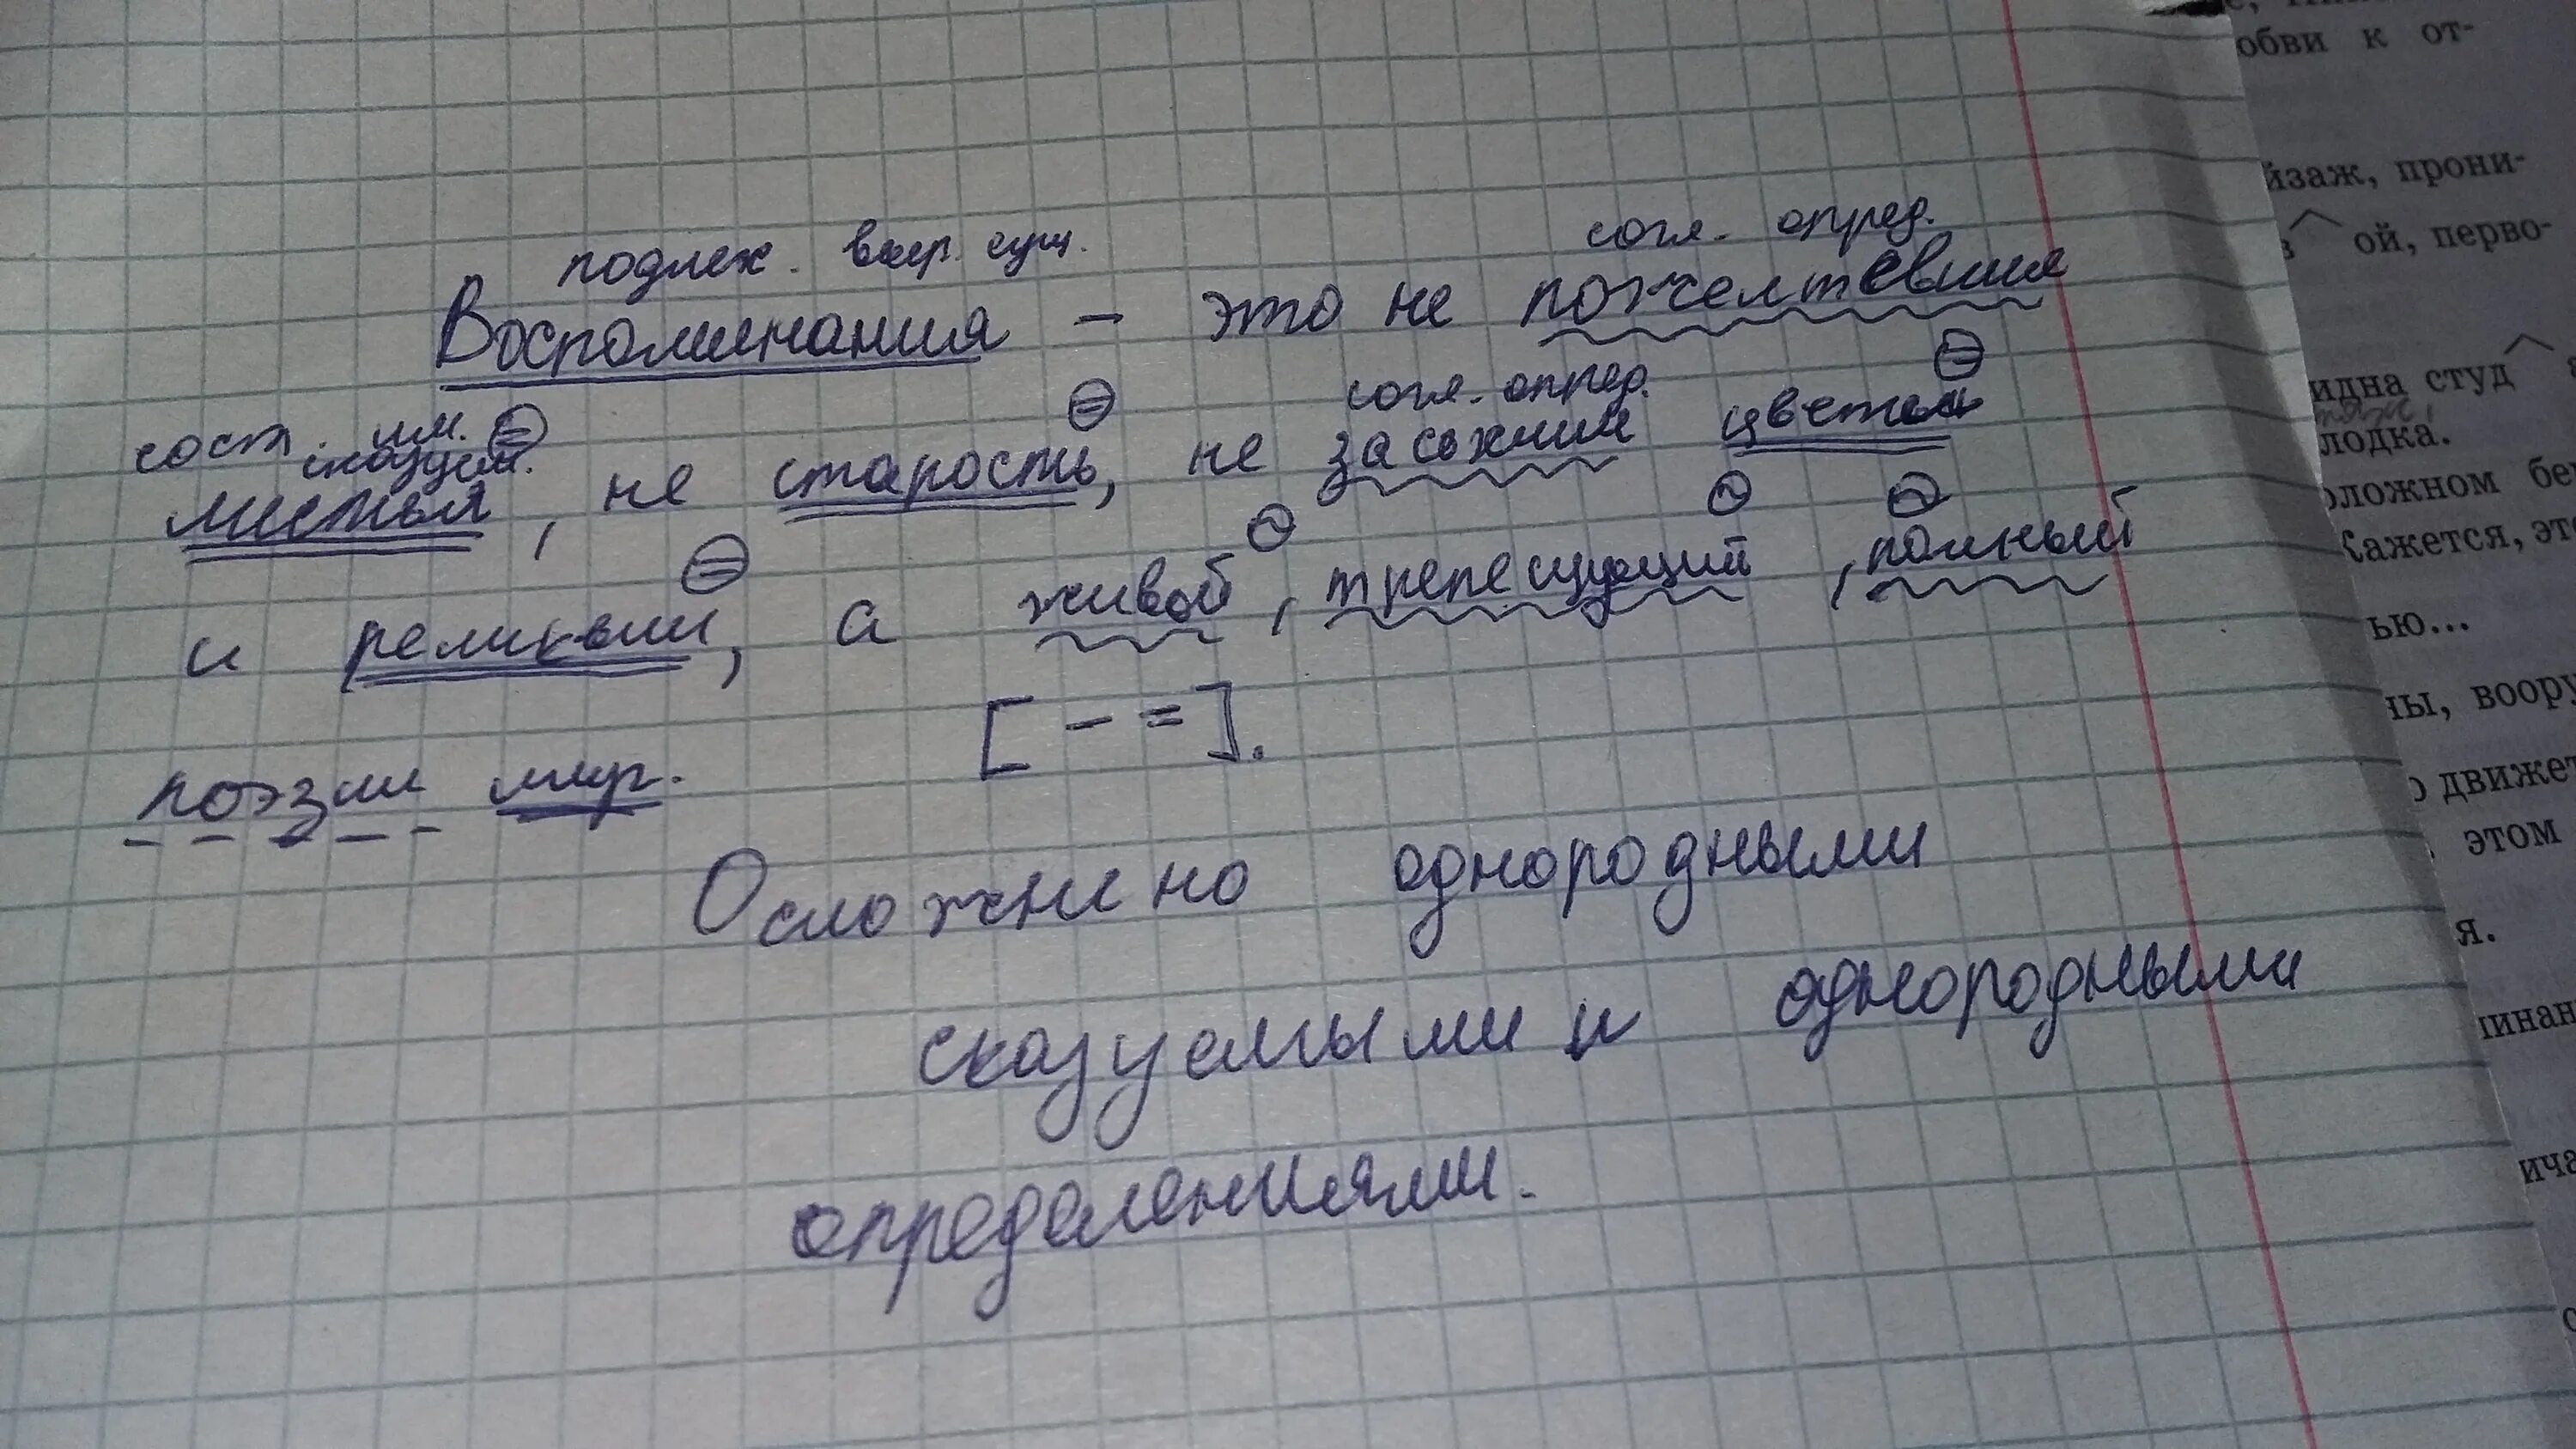 подлеж. выр. сущ.
согл. опред.
Воспоминания - это не пожелтевшие
сост. им. сказуем.
согл. опред.
листья, не старость, не засохшие цветы
и реликвии, а живой, трепещущий, полный
[- =].
поэзии мир.
Осложнено однородными
сказуемыми и однородными
определениями.
обви к от-
йзаж, прони-
ой, перво-
идна студ
лодка.
оложном бе
Кажется, эт
ью...
ны, воору
о движет
этом
я.
инан
ича